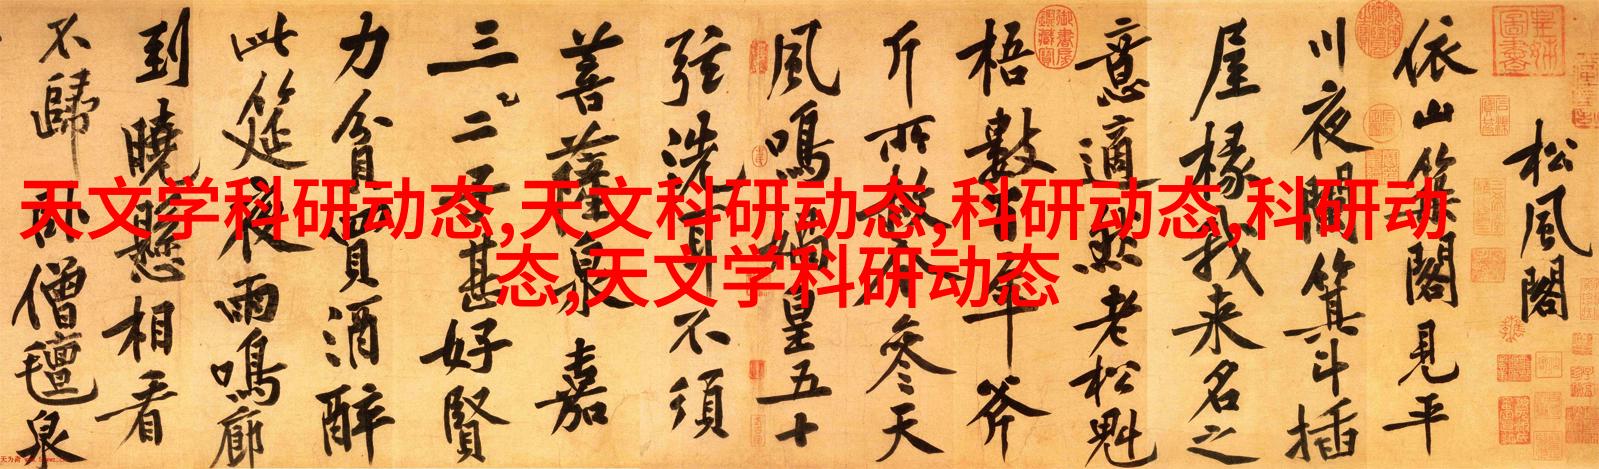 天文学科研动态,天文科研动态,科研动态,科研动
态,天文学科研动态
松風閣
依山築閣見平
川夜闌箕斗插
屋椽我来名之
意適然老松魁
梧數百年斧
斤所赦今參天
風鳴媧皇五十
弦洗耳不須
菩薩泉嘉
三二子甚好賢
力貧買酒醉
此筵夜雨鳴廊
到曉懸相看
不歸卧僧氈泉